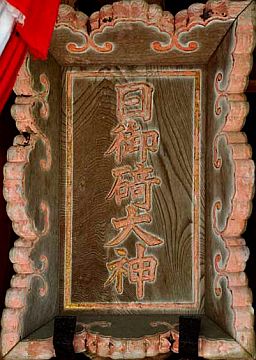 日御碕大神